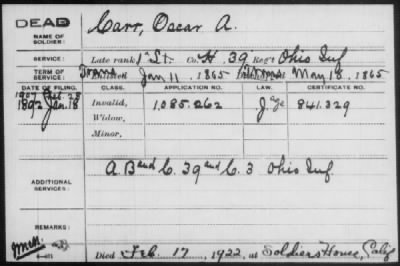 DEAD
NAME OF SOLDIER: Carr, Oscar A.
SERVICE: Late rank 1" Lt. Co. H. 39 Reg't Ohio Inf
TERM OF SERVICE: Jan 11, 1865 May 18, 1865
DATE OF FILING. CLASS. APPLICATION NO. LAW. CERTIFICATE NO.
1907 Feb. 28
1892 Jan. 18 Invalid, 1,085.262 J. age 841.329
Widow,
Minor,
ADDITIONAL SERVICES: A. Band C. 39 and C. 3 Ohio Inf
REMARKS:
Died Feb 17, 1922, at Soldiers Home, Calif